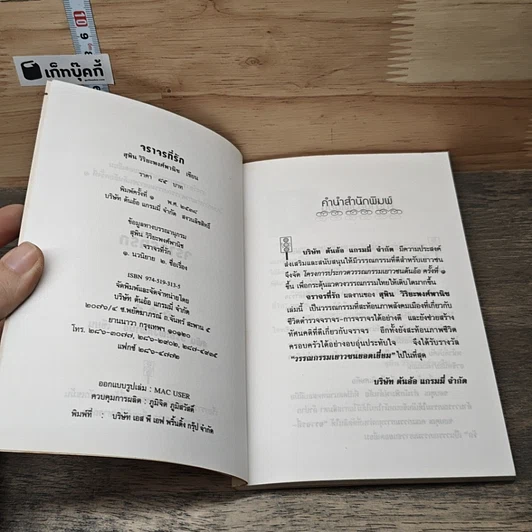 เก็ทบุ๊คกี้
จราจรที่รัก
สุพิน วิริยะพงศ์พานิช เขียน
ราคา ๘๕ บาท
พิมพ์ครั้งที่ ๑
บริษัท ต้นอ้อ แกรมมี่ จำกัด สงวนลิขสิทธิ์
ข้อมูลทางบรรณานุกรม
สุพิน วิริยะพงศ์พานิช
จราจรที่รัก
๑. นวนิยาย ๒. ชื่อเรื่อง
ISBN 974-519-313-5
จัดพิมพ์และจัดจำหน่ายโดย
บริษัท ต้นอ้อ แกรมมี่ จำกัด
ซ.พยัคฆาภรณ์ ถ.จันทร์ สะพาน ๔
ยานนาวา กรุงเทพฯ ๑๐๑๒๐
ออกแบบรูปเล่ม : MAC USER
ควบคุมการผลิต : ภูมิจิต ภูมิสวัสดิ์
พิมพ์ที่ : บริษัท เอส พี เอฟ พริ้นติ้ง กรุ๊ป จำกัด
คำนำสำนักพิมพ์
บริษัท ต้นอ้อ แกรมมี่ จำกัด มีความประสงค์
ส่งเสริมและสนับสนุนให้มีวรรณกรรมที่ดีสำหรับเยาวชน
จึงจัด โครงการประกวดวรรณกรรมเยาวชนต้นอ้อ ครั้งที่ ๑
ขึ้น เพื่อกระตุ้นแวดวงวรรณกรรมไทยให้เติบโตมากขึ้น
จราจรที่รัก ผลงานของ สุพิน วิริยะพงศ์พานิช
เล่มนี้ เป็นวรรณกรรมที่สะท้อนภาพสังคมเมืองที่เกี่ยวกับ
ชีวิตตำรวจจราจร-การจราจรได้อย่างดี และยังช่วยสร้าง
ทัศนคติที่ดีเกี่ยวกับจราจร อีกทั้งยังสะท้อนภาพชีวิต
ครอบครัวได้อย่างอบอุ่นประทับใจ จึงได้รับรางวัล
"วรรณกรรมเยาวชนยอดเยี่ยม" ไปในที่สุด
บริษัท ต้นอ้อ แกรมมี่ จำกัด